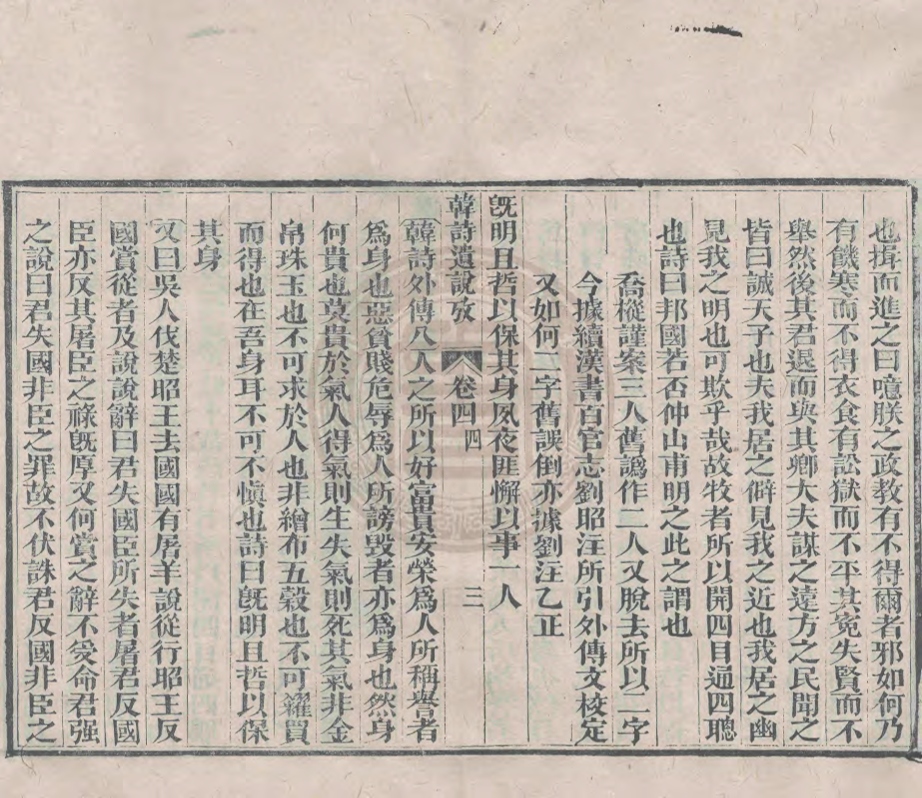 也揖而進之曰噫朕之政教有不得爾者邪如何乃
有飢寒而不得衣食有訟獄而不平其冤失賢而不
舉然後其君退而與其卿大夫謀之遠方之民聞之
皆曰誠天子也夫我居之僻見我之近也我居之幽
見我之明也可欺乎哉故牧者所以開四目通四聰
也詩曰邦國若否仲山甫明之此之謂也
喬樅謹案三人舊譌作二人又脫去所以二字
今據續漢書百官志劉昭注所引外傳文校定
又如何二字舊誤倒亦據劉注乙正
旣明且哲以保其身夙夜匪懈以事一人
韓詩遺說攷 卷四四 三
韓詩外傳八人之所以好富貴安榮爲人所稱譽者
爲身也惡貧賤危辱爲人所謗毀者亦爲身也然身
何貴也莫貴於氣人得氣則生失氣則死其氣非金
帛珠玉也不可求於人也非繒布五穀也不可糴買
而得也在吾身耳不可不愼也詩曰旣明且哲以保
其身
又曰吳人伐楚昭王去國國有屠羊說從行昭王反
國賞從者及說說辭曰君失國臣所失者屠君反國
臣亦反其屠臣之祿旣厚又何賞之辭不受命君強
之說曰君失國非臣之罪故不伏誅君反國非臣之